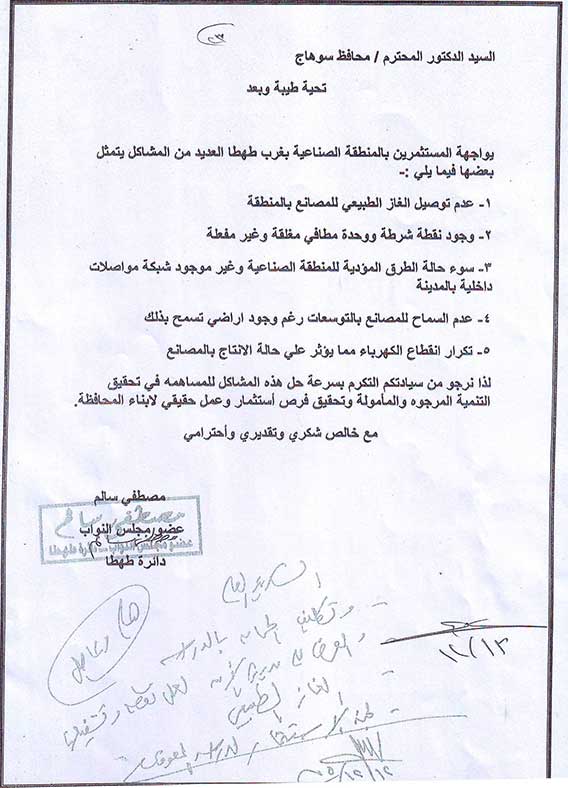 ٢٣
السيد الدكتور المحترم / محافظ سوهاج
تحية طيبة وبعد
يواجهة المستثمرين بالمنطقة الصناعية بغرب طهطا العديد من المشاكل يتمثل
بعضها فيما يلي :-
١- عدم توصيل الغاز الطبيعي للمصانع بالمنطقة
٢- وجود نقطة شرطة ووحدة مطافي مغلقة وغير مفعلة
٣- سوء حالة الطرق المؤدية للمنطقة الصناعية وغير موجود شبكة مواصلات
داخلية بالمدينة
٤- عدم السماح للمصانع بالتوسعات رغم وجود اراضي تسمح بذلك
٥- تكرار انقطاع الكهرباء مما يؤثر علي حالة الانتاج بالمصانع
لذا نرجو من سيادتكم التكرم بسرعة حل هذه المشاكل للمساهمه في تحقيق
التنمية المرجوه والمأمولة وتحقيق فرص أستثمار وعمل حقيقي لابناء المحافظة.
مع خالص شكري وتقديري وأحترامي
مصطفي سالم
عضو مجلس النواب
دائرة طهطا
مصطفى سالم
عضو مجلس النواب - دائرة طهطا
السكرتير العام
هام وعاجل
بالدراسة
١٢/١٣
الغاز الطبيعي